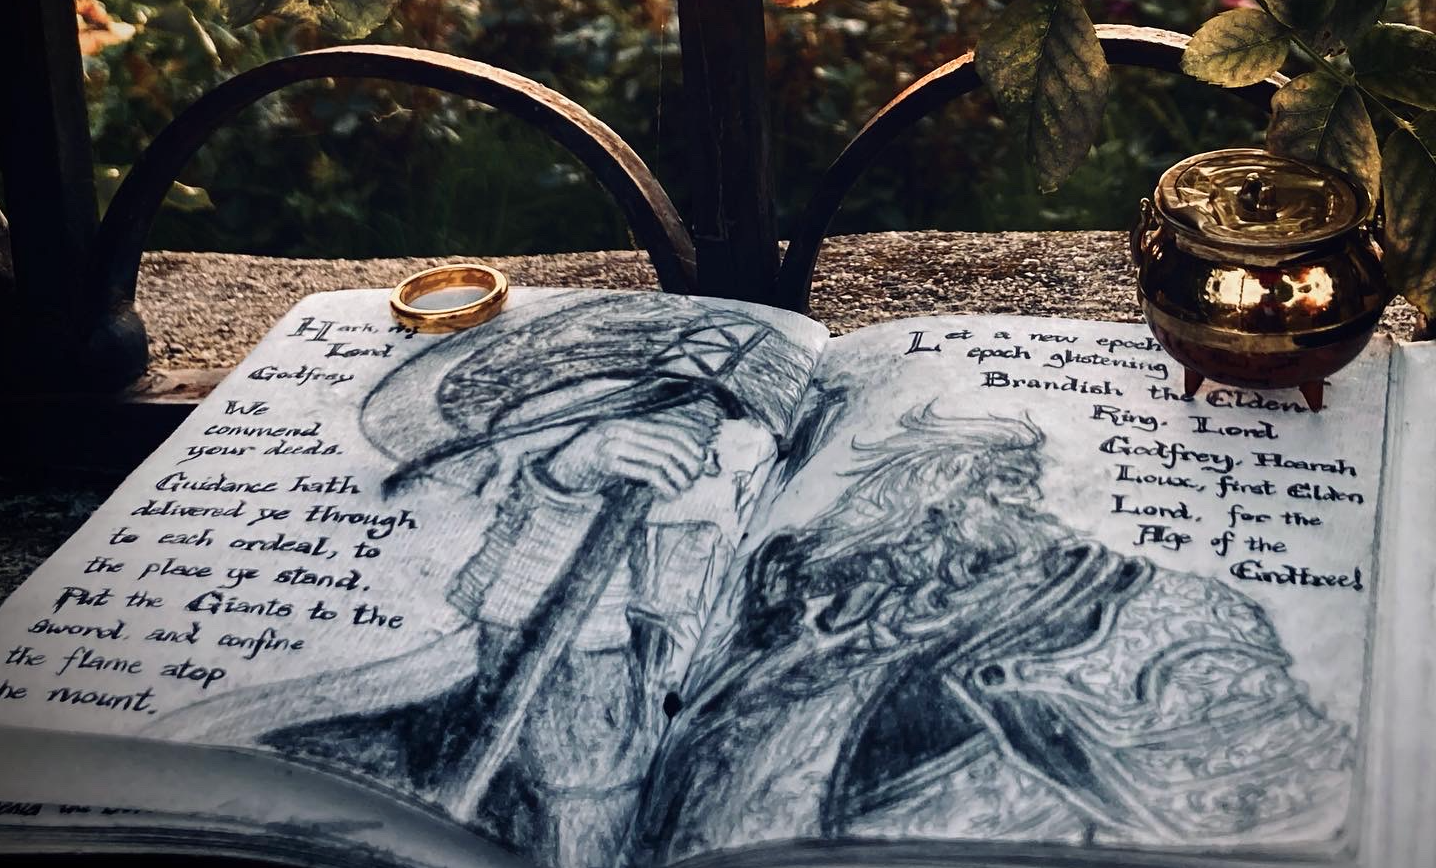 Hark, my
Lord
Godfrey
We
commend
your deeds.
Guidance hath
delivered ye through
to each ordeal, to
the place ye stand.
Put the Giants to the
sword, and confine
the flame atop
he mount.
Let a new epoch
epoch glistening
Brandish the Elden
Ring, Lord
Godfrey, Hoarah
Loux, first Elden
Lord, for the
Age of the
Erdtree!